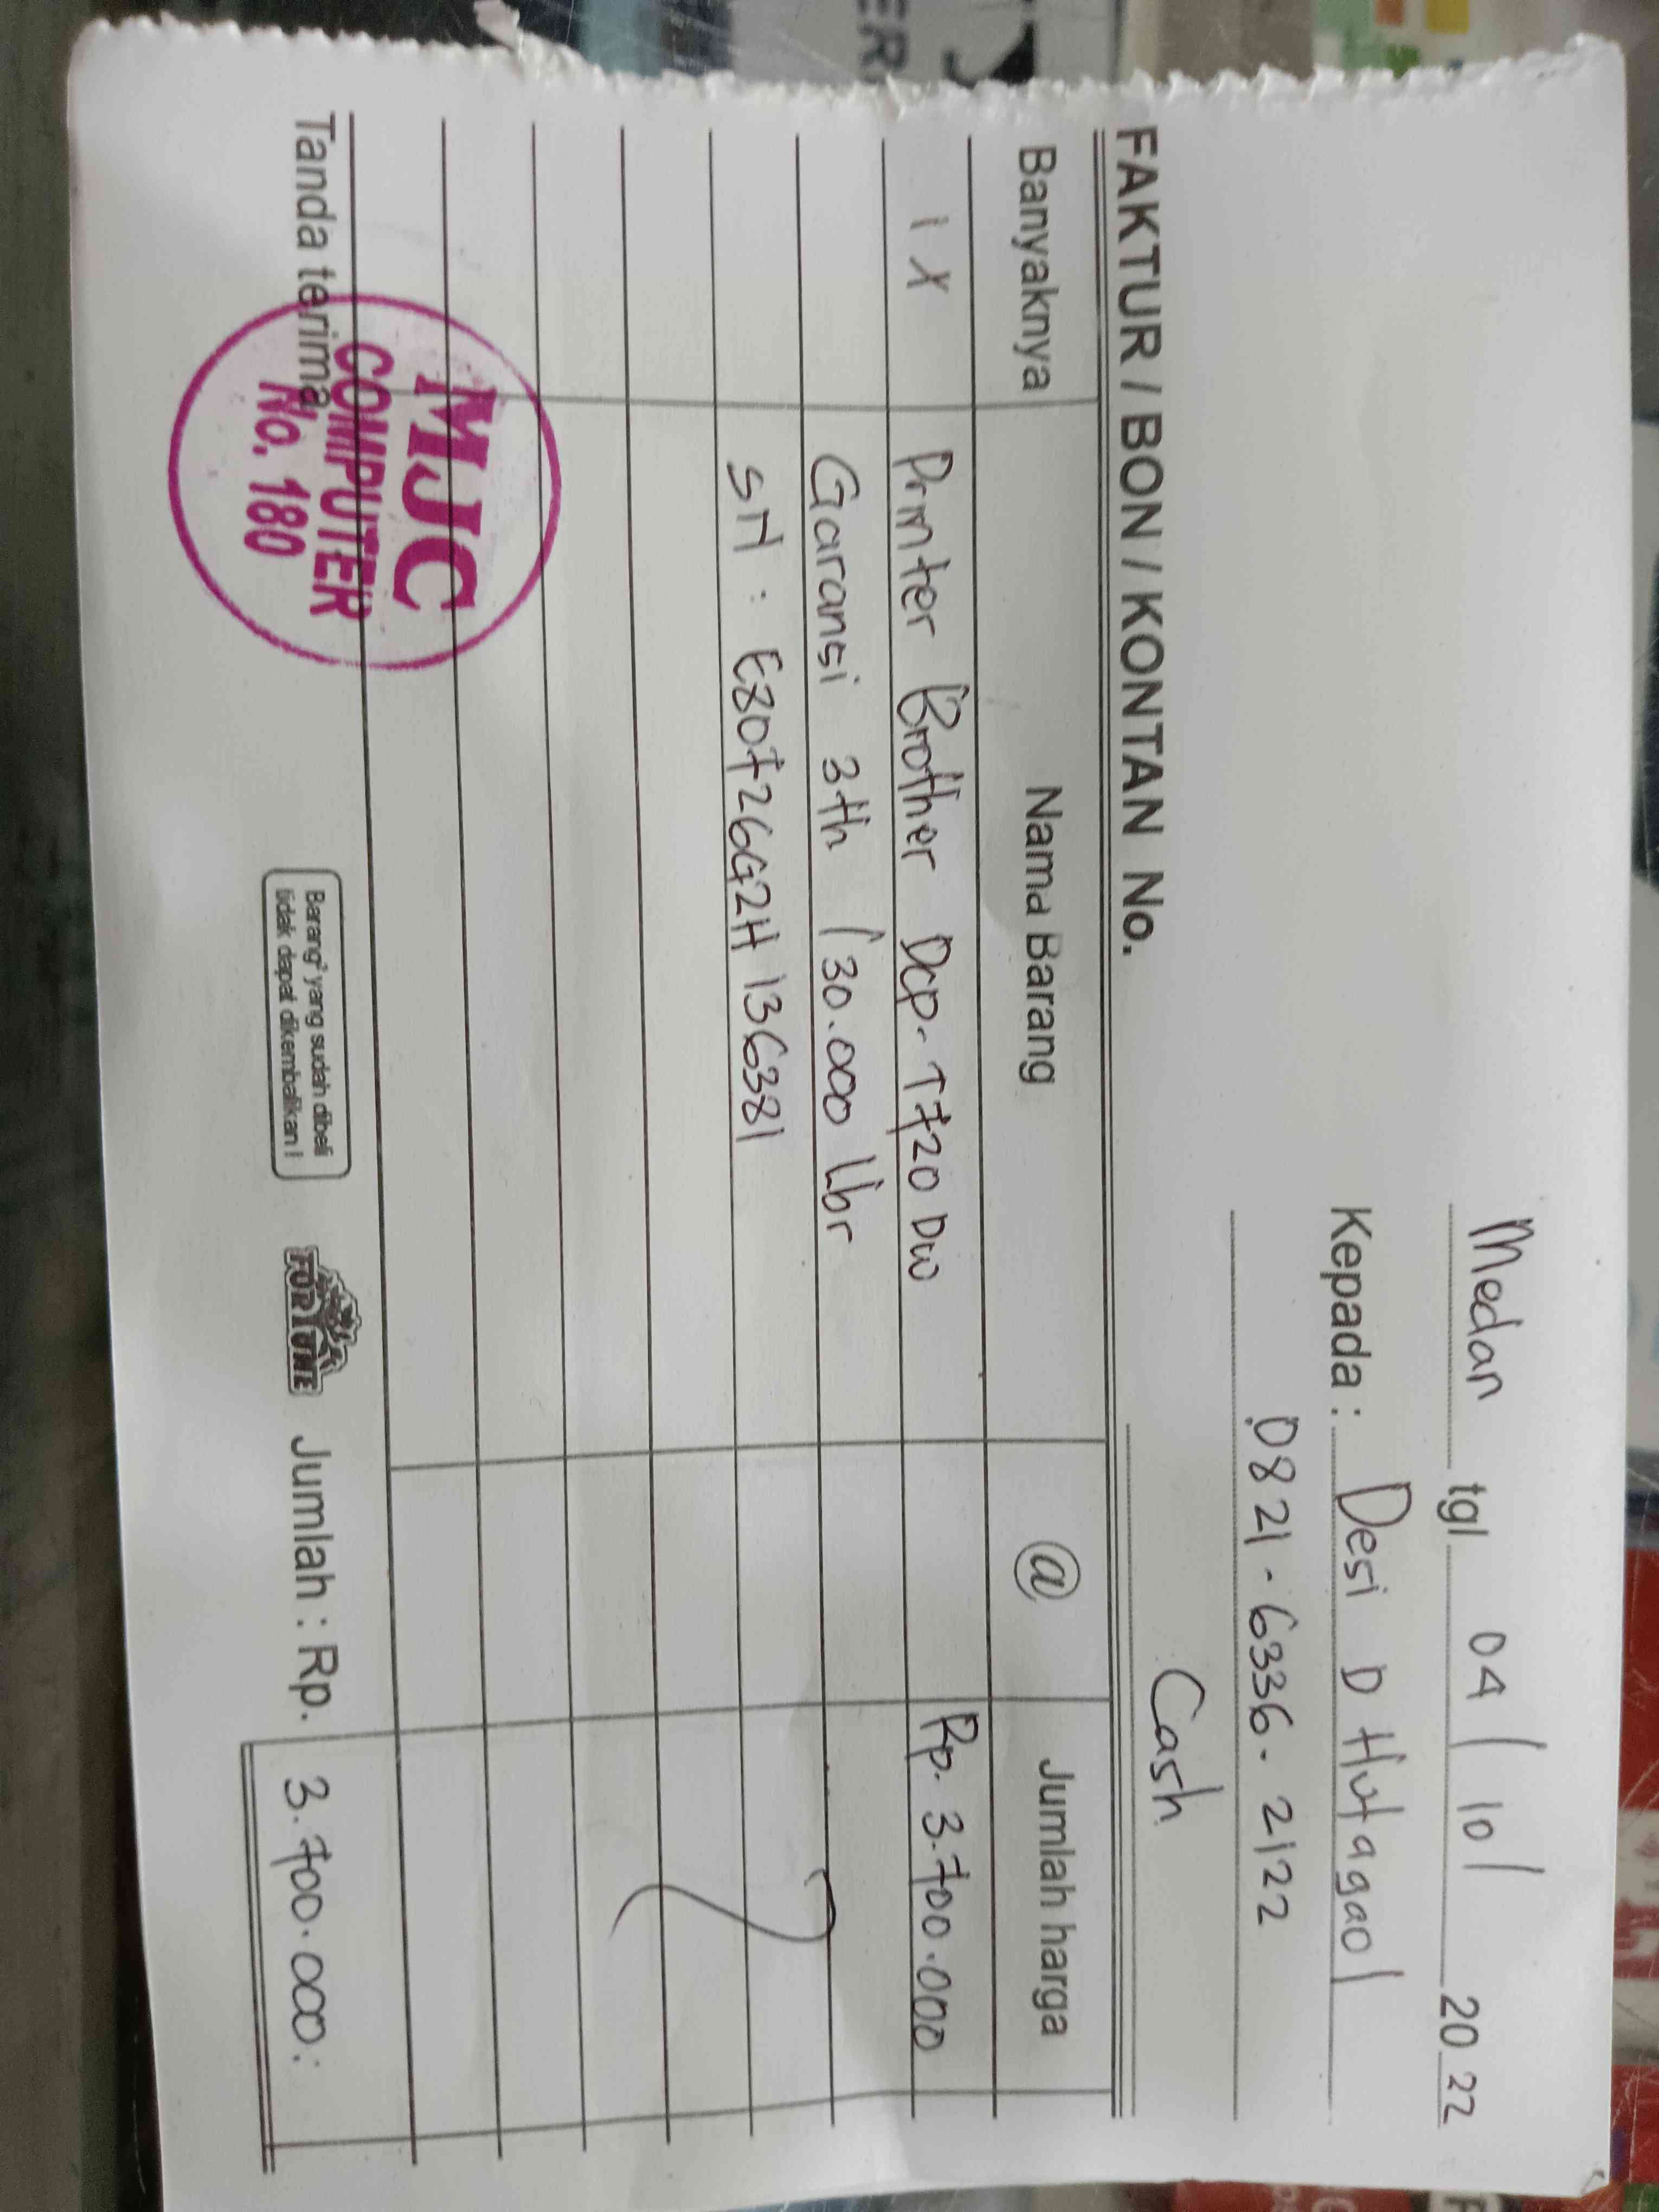 Medan tgl 04/10/ 2022
Kepada : Desi D Hutagaol
0821-6336.2122
Cash
FAKTUR / BON / KONTAN No.
Banyaknya Nama Barang @ Jumlah harga
1 X Printer Brother Dcp-T720 Dw Rp. 3.700.000
Garansi 3th / 30.000 Lbr
SN : E80726G2H136381
Tanda terima
MJC
COMPUTER
No. 180
Barang² yang sudah dibeli
tidak dapat dikembalikan !
FORTUNE
Jumlah : Rp. 3.700.000: